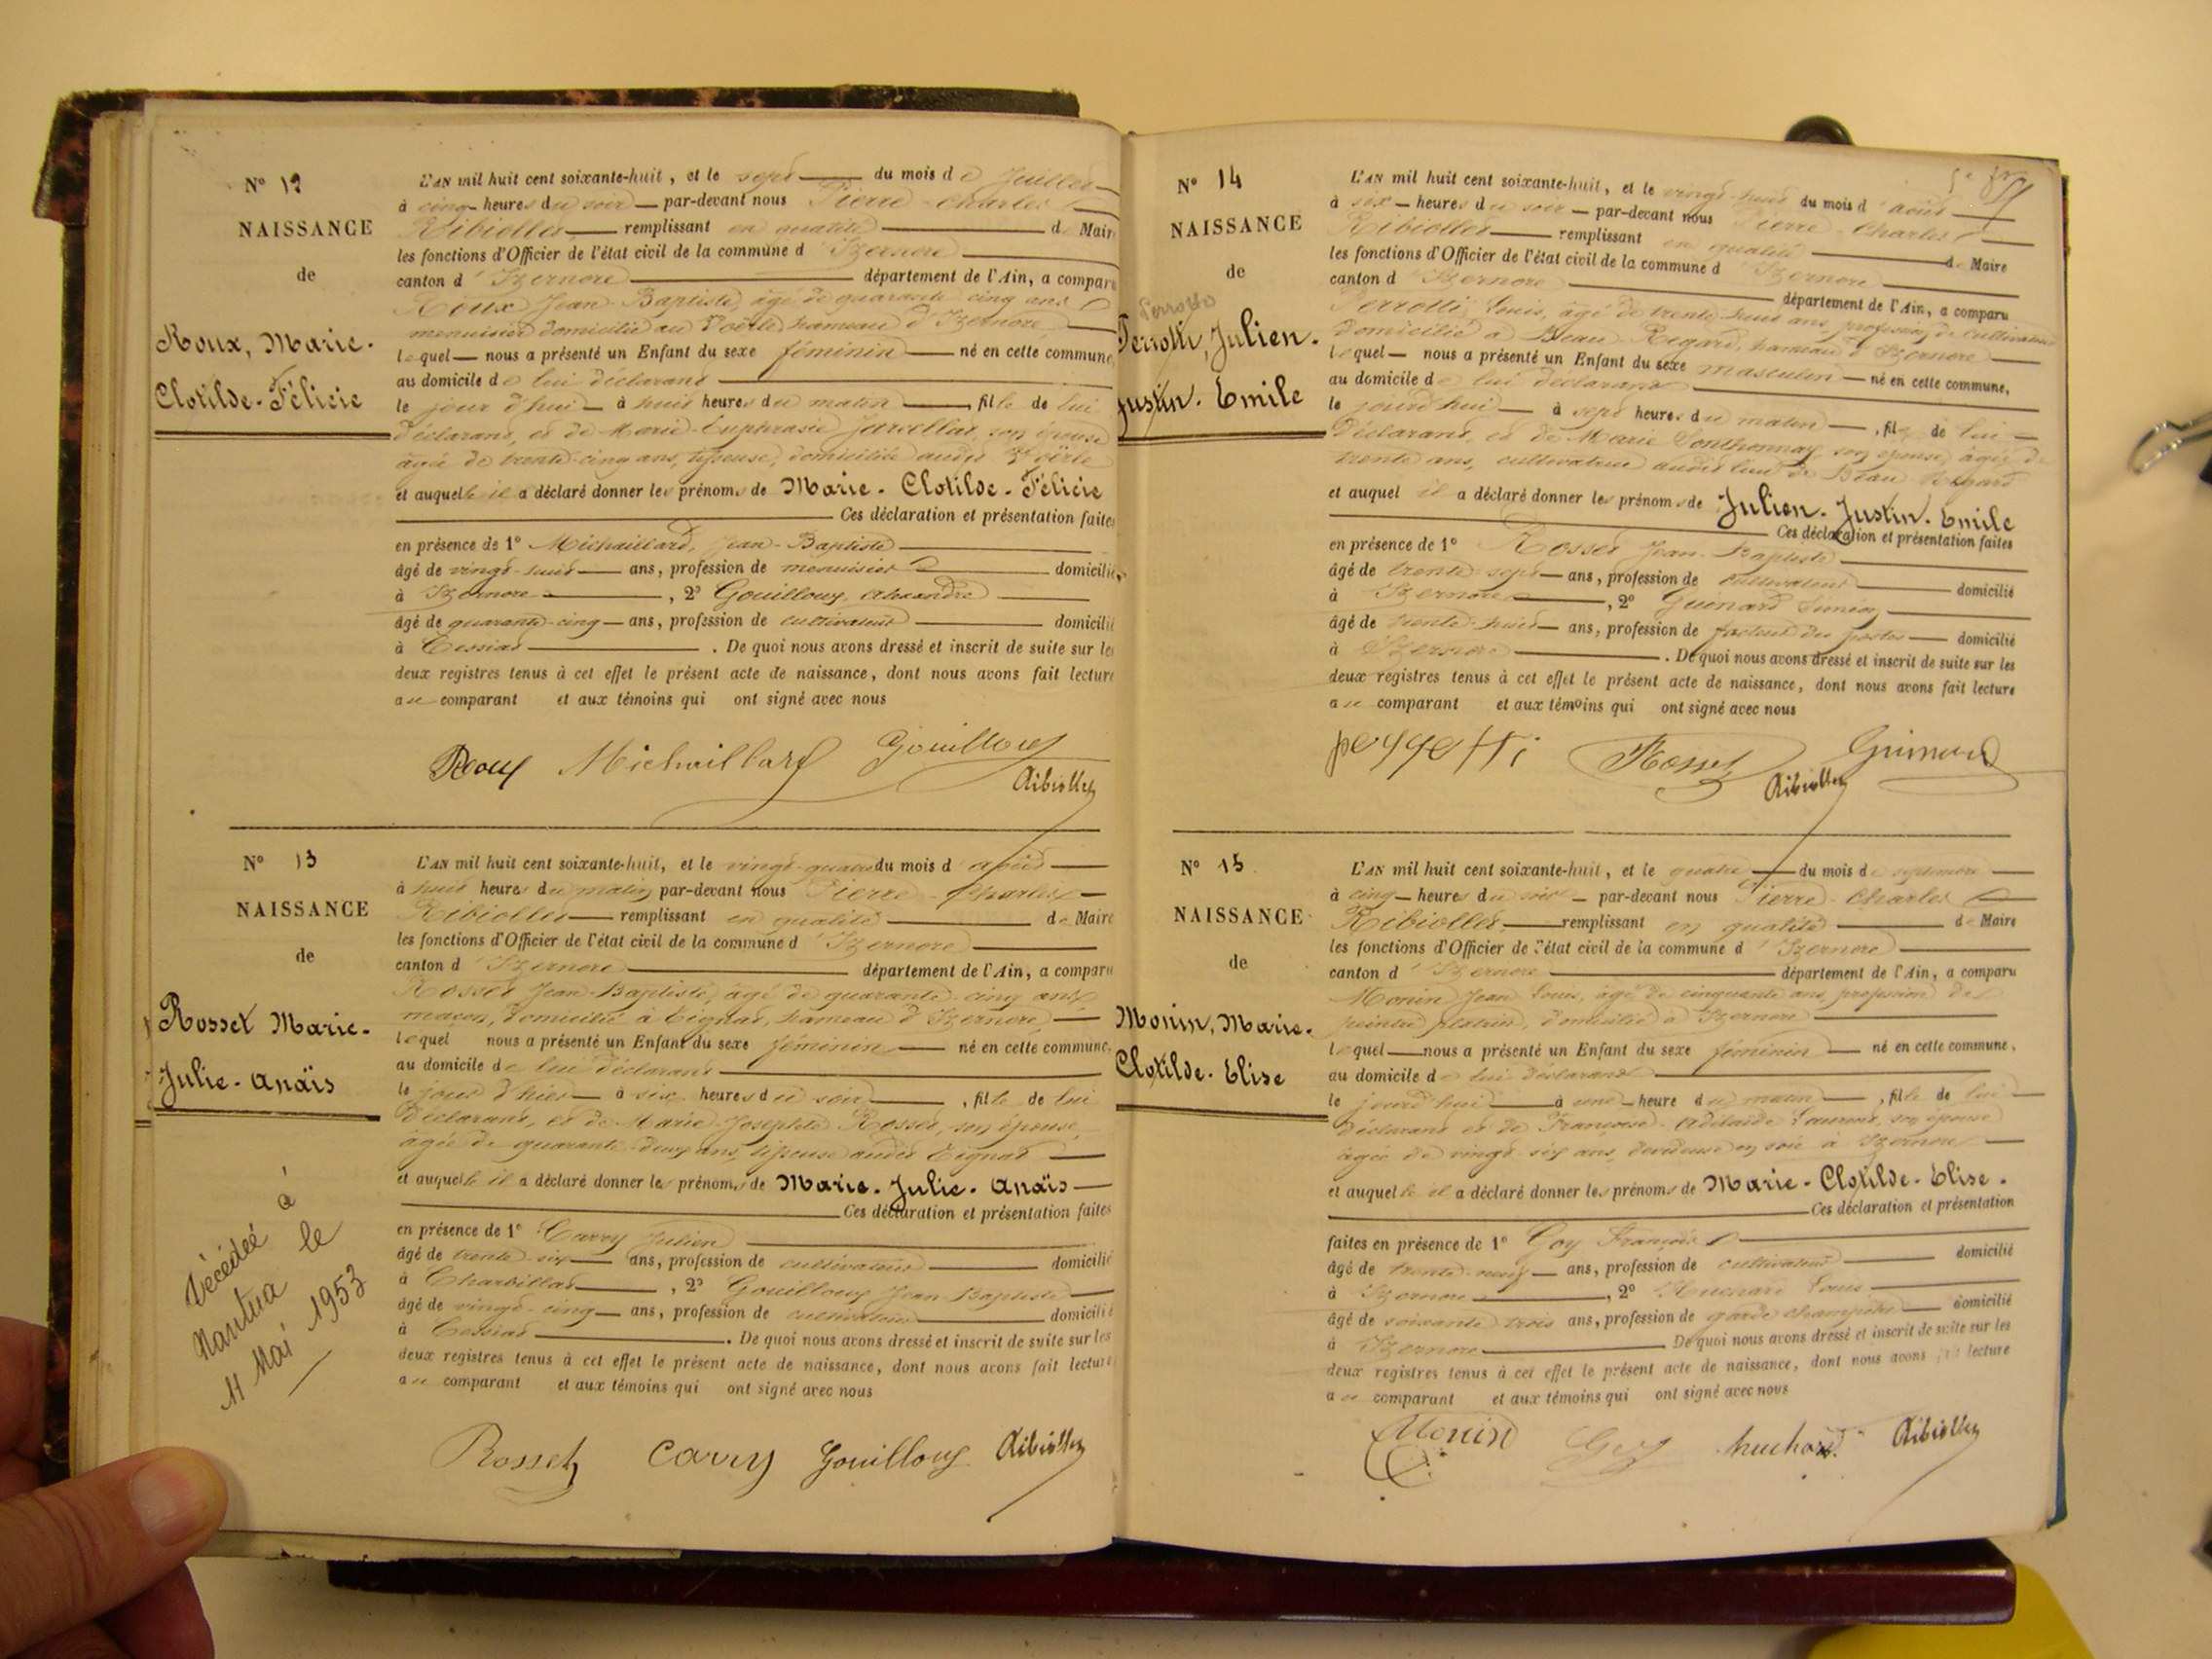 N° 12
NAISSANCE
de
Roux, Marie-
Clotilde-Félicie
L'AN mil huit cent soixante-huit, et le sept du mois de Juillet
à cinq heures du soir par-devant nous Pierre-Charles
Ribiollet remplissant en qualité de Maire
les fonctions d'Officier de l'état civil de la commune d'Izernore
canton d'Izernore département de l'Ain, a comparu
Roux Jean-Baptiste, âgé de quarante cinq ans
menuisier domicilié au Voërle hameau d'Izernore
lequel nous a présenté un Enfant du sexe féminin né en cette commune,
au domicile de lui déclarant
le jour d'hui à huit heures du matin, fille de lui
déclarant, et de Marie-Euphrasie son épouse
âgée de trente-cinq ans, domiciliée audit Voërle
et auquelle il a déclaré donner les prénoms de Marie-Clotilde-Félicie
Ces déclaration et présentation faites
en présence de 1° Michaillard, Jean-Baptiste
âgé de vingt-huit ans, profession de menuisier domicilié
à Izernore, 2° Gouilloux, Alexandre
âgé de quarante-cinq ans, profession de cultivateur domicilié
à Cessiat. De quoi nous avons dressé et inscrit de suite sur les
deux registres tenus à cet effet le présent acte de naissance, dont nous avons fait lecture
au comparant et aux témoins qui ont signé avec nous
Roux Michaillard Gouilloux
Ribiollet
N° 13
NAISSANCE
de
Rosset Marie-
Julie-Anaïs
Décédée à
Nantua le
11 Mai 1953
L'AN mil huit cent soixante-huit, et le vingt-quatre du mois d'août
à huit heures du matin par-devant nous Pierre-Charles
Ribiollet remplissant en qualité de Maire
les fonctions d'Officier de l'état civil de la commune d'Izernore
canton d'Izernore département de l'Ain, a comparu
Rosset Jean-Baptiste, âgé de quarante-cinq ans
maçon, domicilié à Tignat, hameau d'Izernore,
lequel nous a présenté un Enfant du sexe féminin né en cette commune,
au domicile de lui déclarant
le jour d'hier à six heures du soir, fille de lui
déclarant, et de Marie-Josephte Rosset, son épouse,
âgée de quarante-deux ans, audit Tignat
et auquelle il a déclaré donner les prénoms de Marie-Julie-Anaïs
Ces déclaration et présentation faites
en présence de 1° Carry Julien
âgé de trente-six ans, profession de cultivateur domicilié
à Charbillat, 2° Gouilloux Jean-Baptiste
âgé de vingt-cinq ans, profession de cultivateur domicilié
à Cessiat. De quoi nous avons dressé et inscrit de suite sur les
deux registres tenus à cet effet le présent acte de naissance, dont nous avons fait lecture
au comparant et aux témoins qui ont signé avec nous
Rosset Carry Gouilloux Ribiollet
N° 14
NAISSANCE
de
Perrotti, Julien-
Justin-Emile
L'AN mil huit cent soixante-huit, et le vingt-huit du mois d'août
à six heures du soir par-devant nous Pierre-Charles
Ribiollet remplissant en qualité de Maire
les fonctions d'Officier de l'état civil de la commune d'Izernore
canton d'Izernore département de l'Ain, a comparu
Perrotti, Louis, âgé de trente-huit ans, profession de cultivateur
domicilié à Beau-Regard, hameau d'Izernore
lequel nous a présenté un Enfant du sexe masculin né en cette commune,
au domicile de lui déclarant
le jourd'hui à sept heures du matin, fils de lui
déclarant, et de Marie Sonthonnax son épouse, âgée de
trente ans, cultivateur audit lieu de Beau Regard
et auquel il a déclaré donner les prénoms de Julien-Justin-Emile
Ces déclaration et présentation faites
en présence de 1° Rosset Jean-Baptiste
âgé de trente-sept ans, profession de cultivateur domicilié
à Izernore, 2° Guénard Siméon
âgé de trente-huit ans, profession de facteur des postes domicilié
à Izernore. De quoi nous avons dressé et inscrit de suite sur les
deux registres tenus à cet effet le présent acte de naissance, dont nous avons fait lecture
au comparant et aux témoins qui ont signé avec nous
perrotti Rosset
Ribiollet
N° 15
NAISSANCE
de
Monin, Marie-
Clotilde-Elise
L'AN mil huit cent soixante-huit, et le quatre du mois de septembre
à cinq heures du soir par-devant nous Pierre-Charles
Ribiollet remplissant en qualité de Maire
les fonctions d'Officier de l'état civil de la commune d'Izernore
canton d'Izernore département de l'Ain, a comparu
Monin Jean Louis, âgé de cinquante ans, profession de
peintre platrier, domicilié à Izernore
lequel nous a présenté un Enfant du sexe féminin né en cette commune,
au domicile de lui déclarant
le jourd'hui à une heure du matin, fille de lui
déclarant et de Françoise-Adélaïde Laurent, son épouse
âgée de vingt-six ans, dévideuse en soie à Izernore
et auquelle il a déclaré donner les prénoms de Marie-Clotilde-Elise.
Ces déclaration et présentation
faites en présence de 1° Goy François
âgé de trente-neuf ans, profession de cultivateur domicilié
à Izernore, 2° Louis
âgé de soixante trois ans, profession de garde champêtre domicilié
à Izernore De quoi nous avons dressé et inscrit de suite sur les
deux registres tenus à cet effet le présent acte de naissance, dont nous avons fait lecture
au comparant et aux témoins qui ont signé avec nous
Monin Goy Ribiollet